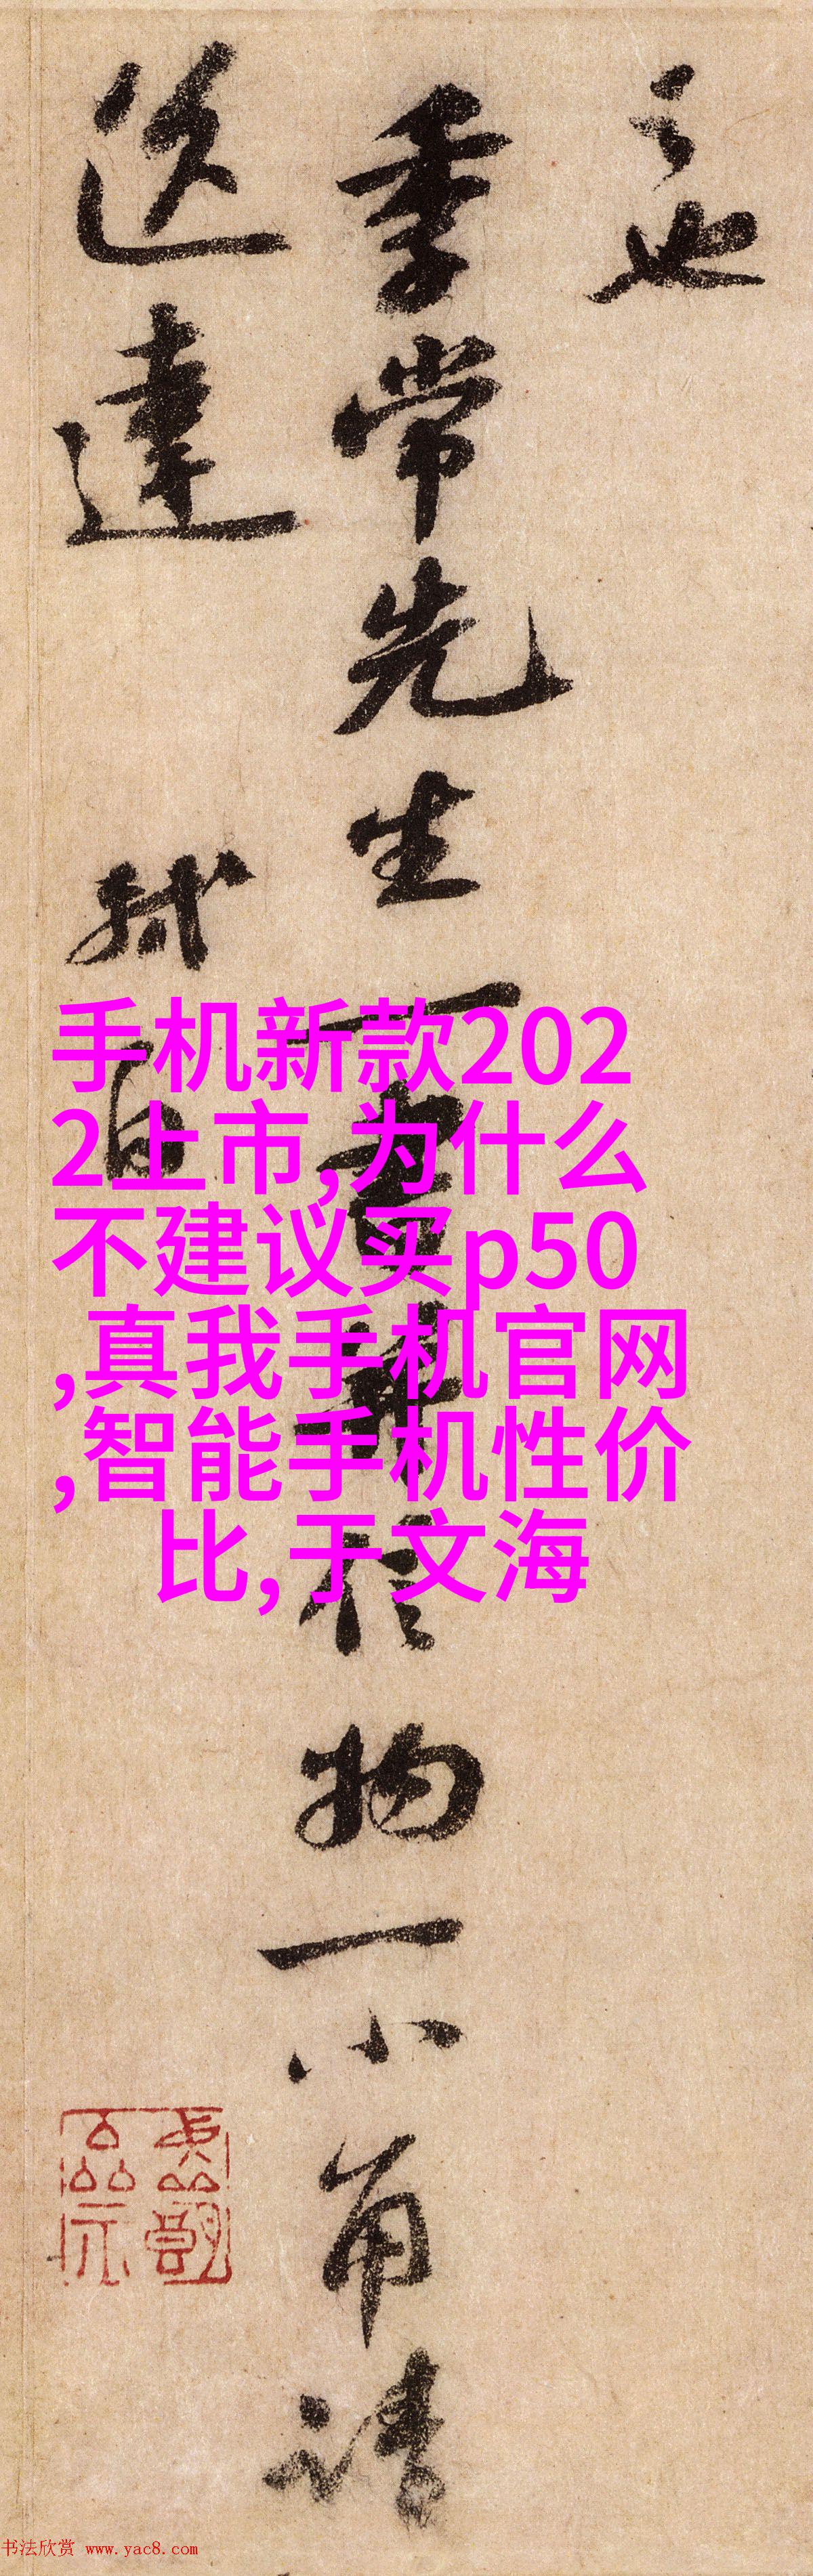 之也
季常先生一書并信物一小角請
送達
軾白
手机新款202
2上市,为什么
不建议买p50
,真我手机官网
,智能手机性价
比,于文海
书法欣赏 www.yac8.com